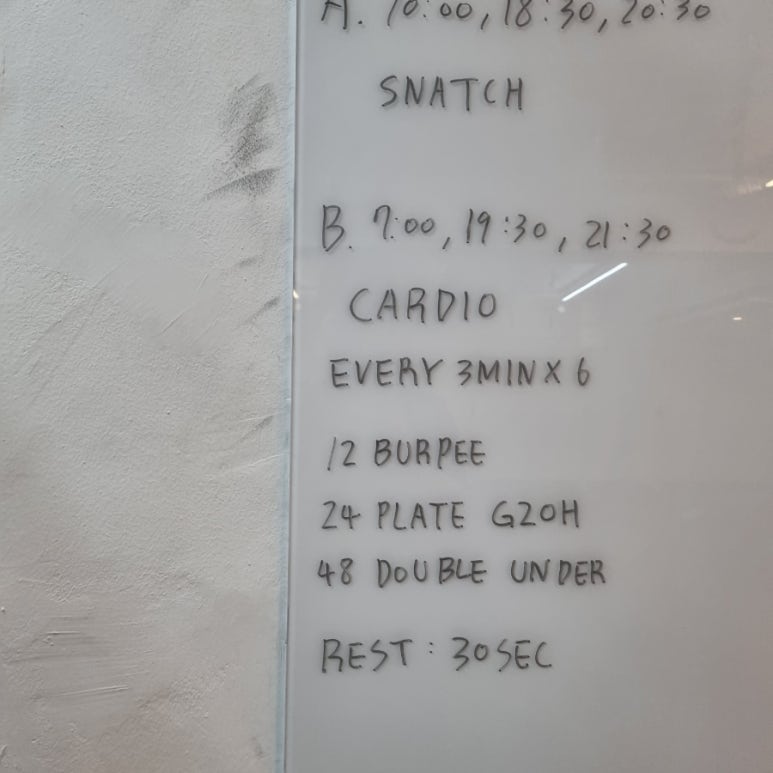 A. 10:00, 18:30, 20:30
SNATCH
B. 7:00, 19:30, 21:30
CARDIO
EVERY 3MIN X 6
12 BURPEE
24 PLATE G2OH
48 DOUBLE UNDER
REST : 30SEC